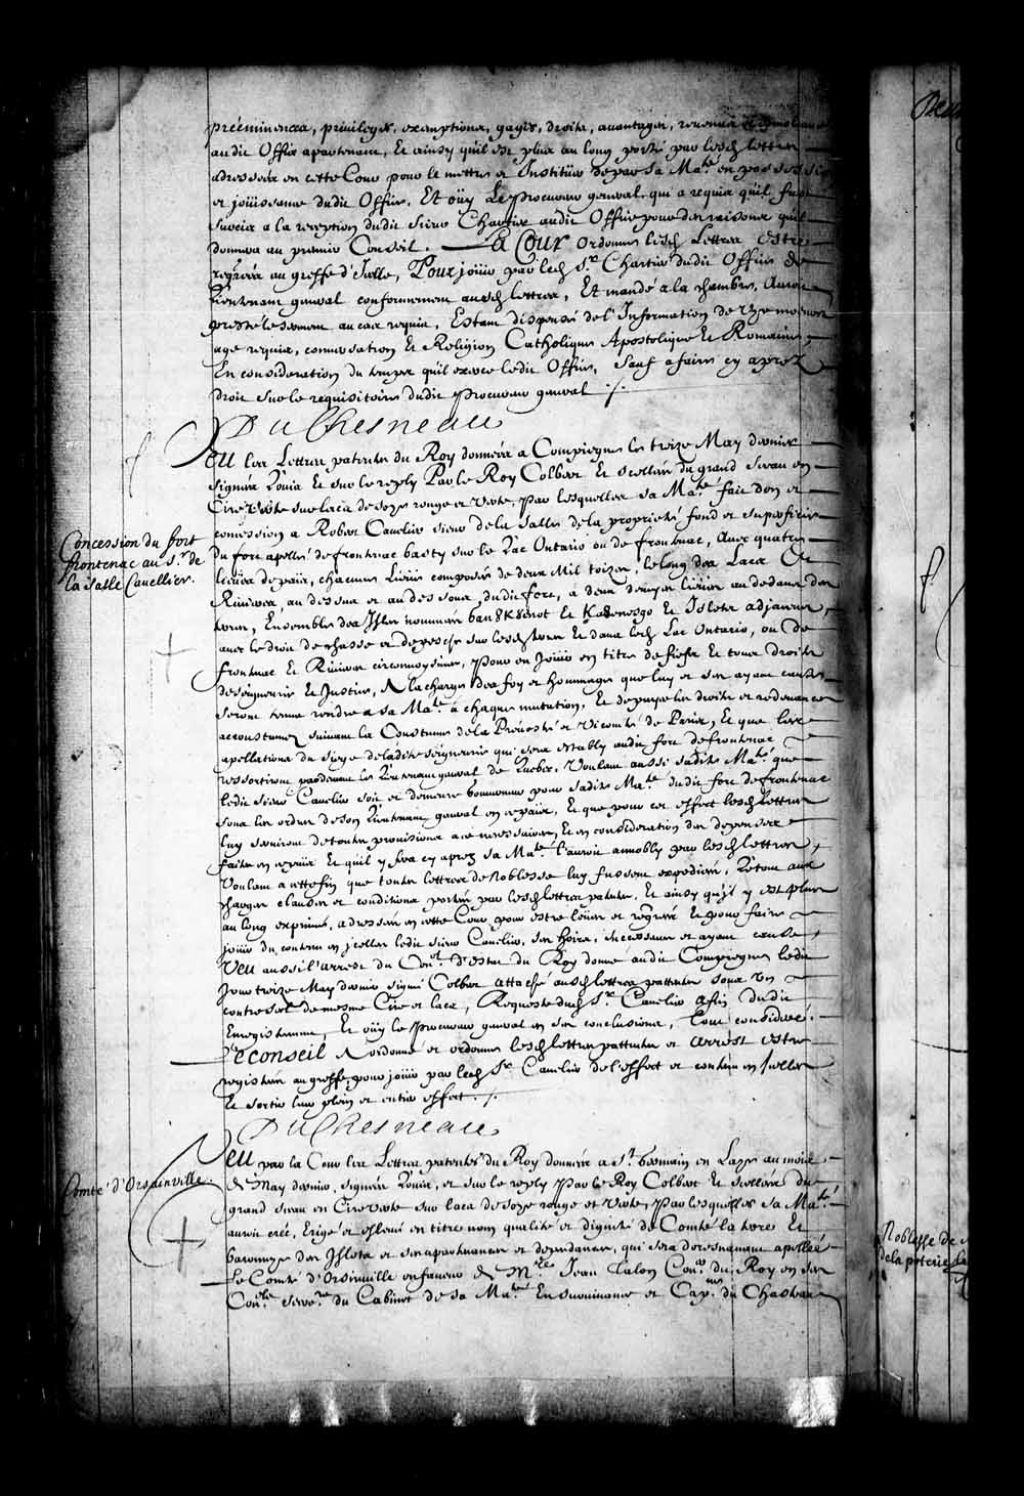 prééminences, privileges, exemptions, gages, droits, avantages, revenus
audit Office apartenans, Et ainsy quil est plus au long porté par lesd lettres
adressées en cette Cour pour le mettre et Instituer de par sa Ma.té en possession
et joüissance dudit Office. Et oüy Le procureur general, qui a requis quil fust
surcis a la reception dudit Sieur Chartier audit Office pour des raisons quil
donnera au premier Conseil. La Cour Ordonne lesd. Lettres estre
regrées au greffe d'Icelle, Pour joüir par led. S.r Chartier dudit Office de
Lieutenant general conformement ausd lettres, Et mandé a la chambre, Auroit
presté le serment au cas requis, Estant dispensé de l'Information de vye moeurs
age requis, conversation Et Religion Catholique Apostolique Et Romaine,
En consideration du temps quil exerce ledit Office, Sauf a faire cy aprez
droit sur le requisitoire dudit procureur general ./.
DuChesneau
Veu les Lettres patentes du Roy données a Compiegne le treize May dernier
signées Louis Et sur le reply Par le Roy Colbert Et scellées du grand sceau en
Cire verte sur lacs de soye rouge et verte, par lesquelles sa Ma.té fait don et
concession a Robert Cavelier sieur de la Salle de la proprieté fond et superficie
Du fort apellé de frontenac basty sur le Lac Ontario ou de frontenac, Avec quatre
lieües de païs, chacune Lieüe composée de deux Mil toizes, le long des Lacs Et
Rivieres, au dessus et au dessous dudit fort, et deux desmyes lieües au dedans des
terres, Ensemble des Isles nommées Gan8k8enot Et Ka8enesgo Et Islets adjacents,
avec le droit de chasse et de pesche sur lesd. terres Et dans led. Lac Ontario, ou De
frontenac Et Rivieres circonvoysines, pour en Joüir en titre de fief Et tous droits
de seigneurie Et Justice, A la charge des foy et hommages que luy et ses ayans cause
seront tenus rendre a sa Ma.té a chaque mutation, Et de payer les droits et redevances
accoustumez suivant la Coustume de la Prevosté et Vicomté de Paris, Et que les
apellations du Juge de ladite seigneurie qui sera estably audit fort de frontenac
ressortiront pardevant le Lieutenant general de Quebec. Voulant aussi sadite Ma.té que
ledit sieur Cavelier soit et demeure Gouverneur pour sadite Ma.té dudit fort de frontenac
sous les ordres de son Lieutenant general en ce païs, Et que pour cet effect lesd lettres
luy serviront de toutes provisions a ce necessaires, Et en consideration des depenses
faites en ce païs Et quil y fera cy aprez sa Ma.té l'auroit annobly par lesd lettres,
Voulant a cette fin que toutes lettres de Noblesse luy fussent expediées, Le tout aux
charges clauses et conditions portées par lesd lettres patentes, Et ainsy quil y est plus
au long exprimé, adressées en cette Cour pour estre leües et regrées Et pour faire
joüir du contenu en jcelles ledit sieur Cavelier, ses hoirs, successeurs et ayans cause,
Veu aussi l'arrest du Con.l d'Estat du Roy donné audit Compiegne ledit
Jour treize May dernier signé Colbert attaché ausd lettres patentes sous un
contrescel de mesme Cire et lacs, Requeste dud. S.r Cavelier afin dudit
Enregistrement, Et oüy le procureur general en ses conclusions, tout consideré.
Le conseil A ordonné et ordonne lesd lettres patentes et arrest estre
registrées au greffe pour joüir par led. S.r Cavelier de l'effect et contenu en Icelles
Et sortir leur plein et entier effect ./.
DuChesneau
Veu par la Cour les Lettres patentes du Roy données a S.t Germain en Laye au mois
de May dernier, signées Louis, et sur le reply Par le Roy Colbert Et scellées du
grand sceau en Cire verte sur lacs de soye rouge et verte, Par lesquelles sa Ma.té
auroit creé, Erigé et eslevé en titre nom qualité et dignité de Comté la terre Et
Baronnye des Islets et ses apartenances et dependances, qui sera doresnavant apellée
Le Comté d'Orsinville en faveur de M.re Jean Talon Con.er du Roy en ses
Con.ls Secre.re du Cabinet de sa Ma.té Cap.ne du Chasteau
Concession du fort
frontenac au S.r de
la Salle Cavellier.
Comté d'Orsainville.
Noblesse de
de la poterie